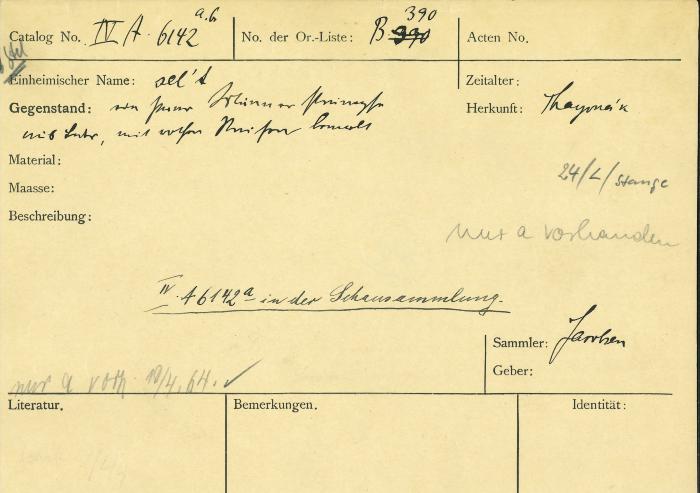 Catalog No. IV A. 6142 a.b
No. der Or.-Liste: B. 390 390
Acten No.
Einheimischer Name: sel't
Zeitalter:
Gegenstand: ein Paar Männer
mit rothen Streifen bemalt
Herkunft:
Material:
Maasse:
24/L/Stange
Beschreibung:
nur a vorhanden
IV. A 6142a in der Schausammlung.
Sammler: Jacobsen
Geber:
nur a vorh. 10/4.64. ✓
Literatur.
Bemerkungen.
Identität: